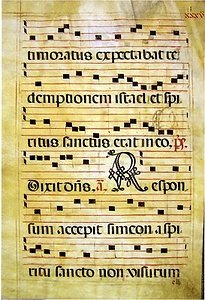 timoratus expectabat re
demptionem israel et spi
ritus sanctus erat in eo. ps.
Dixit dns. a. Respon
sum accepit simeon a spi
ritu sancto non visurum